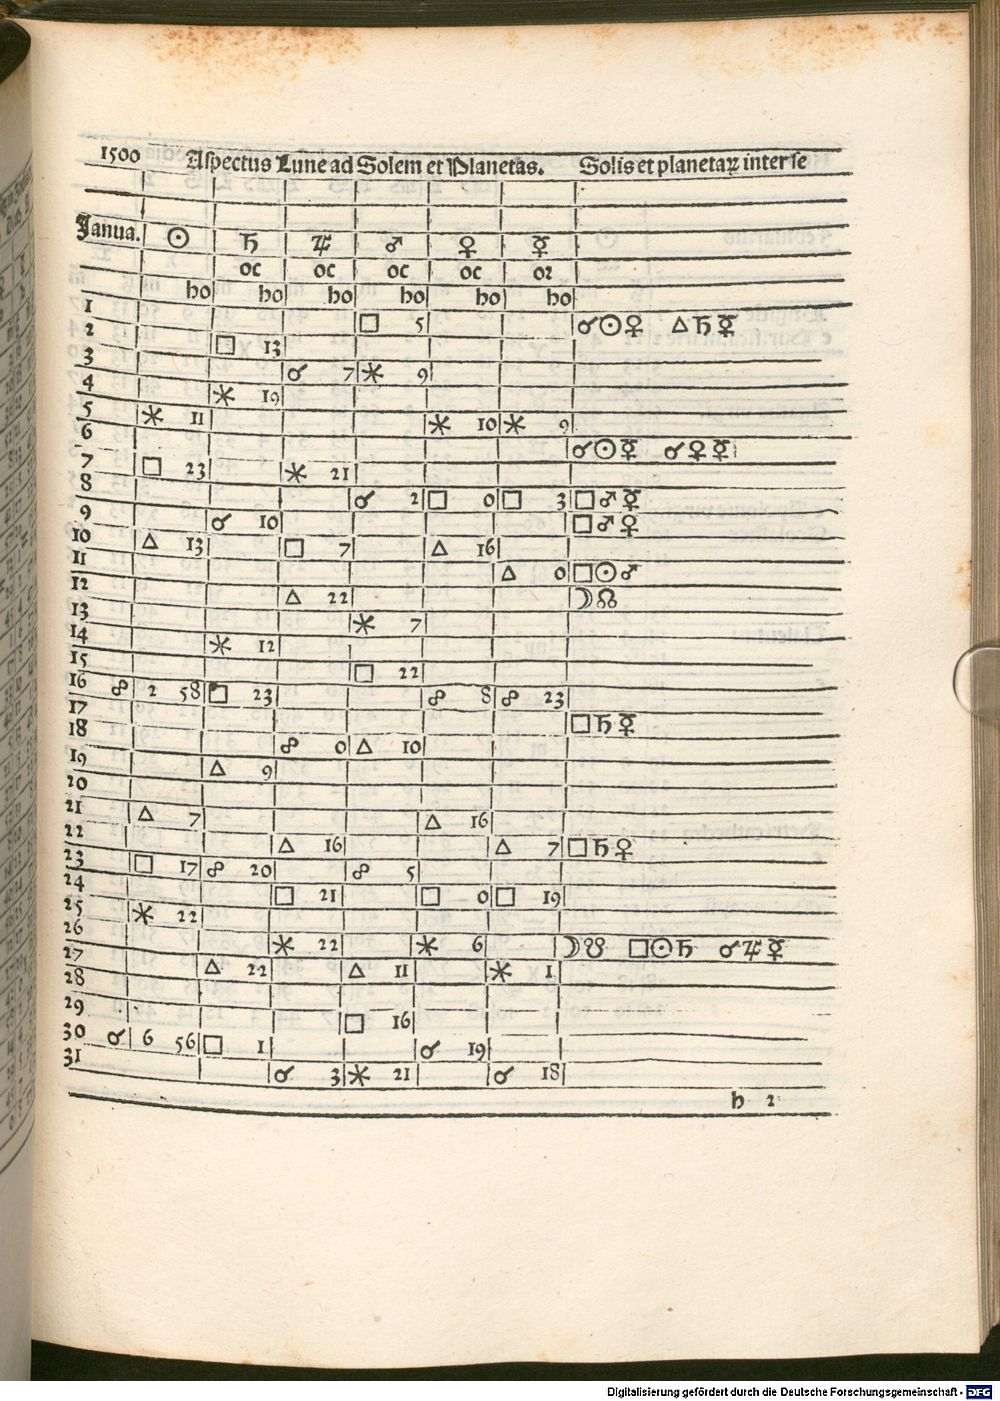 1500 Aspectus Lune ad Solem et Planetas. Solis et planetaꝝ inter se
Janua. ☉ ♄ ♃ ♂ ♀ ☿
oc oc oc oc or
ho ho ho ho ho ho
1 □ 5 ☌☉♀ △♄☿
2 □ 13
3 ☌ 7 ⚹ 9
4 ⚹ 19
5 ⚹ 11 ⚹ 10 ⚹ 9
6 ☌☉☿ ☌♀☿
7 □ 23 ⚹ 21
8 ☌ 2 □ 0 □ 3 □♂☿
9 ☌ 10 □♂♀
10 △ 13 □ 7 △ 16
11 △ 0 □☉♂
12 △ 22 ☽☊
13 ⚹ 7
14 ⚹ 12
15 □ 22
16 ☍ 2 58 □ 23 ☍ 8 ☍ 23
17 □♄☿
18 ☍ 0 △ 10
19 △ 9
20
21 △ 7 △ 16
22 △ 16 △ 7 □♄♀
23 □ 17 ☍ 20 ☍ 5
24 □ 21 □ 0 □ 19
25 ⚹ 22
26 ⚹ 22 ⚹ 6 ☽☋ □☉♄ ☌♃☿
27 △ 22 △ 11 ⚹ 1
28
29 □ 16
30 ☌ 6 56 □ 1 ☌ 19
31 ☌ 3 ⚹ 21 ☌ 18
h 2
Digitalisierung gefördert durch die Deutsche Forschungsgemeinschaft - DFG